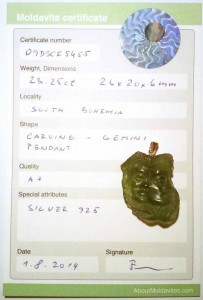 Moldavite certificate
Certificate number
Weight, Dimensions
23.25ct 26x20x6mm
Locality
SOUTH BOHEMIA
Shape
CARVING - GEMINI
PENDANT
Quality
A+
Special attributes
SILVER 925
Date
Signature
1.8.2019
AboutMoldavites.com